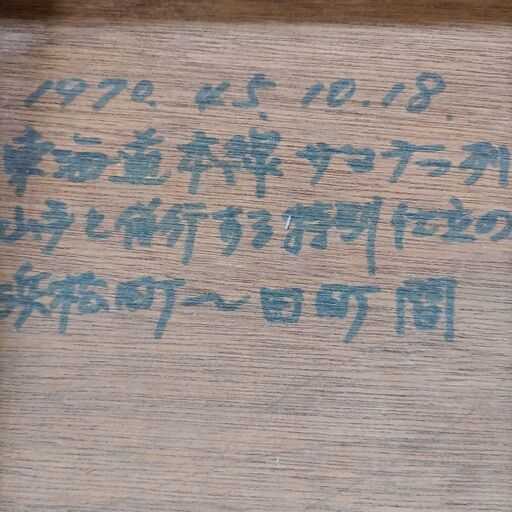 1970. 45. 10. 18.
東海道本線 サヨナラ列
山手と併行する特別仕立の
浜松町〜田町間